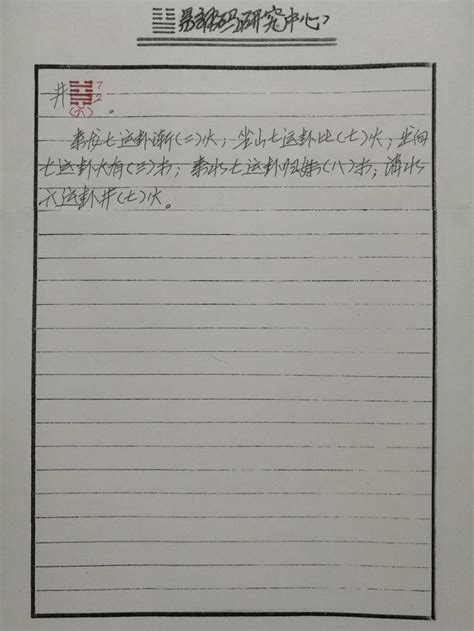 研究中心
井 7
2
(六) 。
来龙七运卦渐(二)火；坐山七运卦比(七)火；坐向
七运卦大有(三)木；来水七运卦归妹(八)木；消水
六运卦井(七)火。